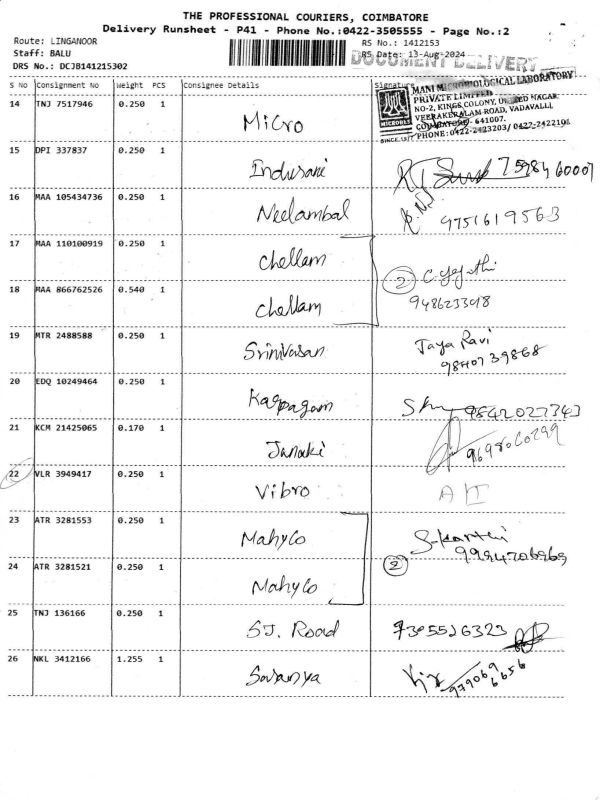 THE PROFESSIONAL COURIERS, COIMBATORE
Delivery Runsheet - P41 - Phone No.:0422-3505555 - Page No.:2
Route: LINGANOOR
RS No.: 1412153
Staff: BALU
RS Date: 13-Aug-2024
DRS No.: DCJB141215302
DOCUMENT DELIVERY
S No Consignment No Weight PCS Consignee Details Signature
MANI MICROBIOLOGICAL LABORATORY
PRIVATE LIMITED
NO-2, KINGS COLONY, NAGAR
VEERAKERALAM ROAD, VADAVALLI,
COIMBATORE- 641007.
PHONE: 0422-2423203/ 0422-2422196
14 TNJ 7517946 0.250 1 Micro
15 DPI 337837 0.250 1 Indusani
16 MAA 105434736 0.250 1 Neelambal 9751619563
17 MAA 110100919 0.250 1 Chellam
2
18 MAA 866762526 0.540 1 Chellam 9486233018
19 MTR 2488588 0.250 1 Srinivasan Jaya Ravi 9840739868
20 EDQ 10249464 0.250 1 Karpagam 9842027343
21 KCM 21425065 0.170 1 Janaki
22 VLR 3949417 0.250 1 Vibro
23 ATR 3281553 0.250 1 Mahyco S.Karthi
2
24 ATR 3281521 0.250 1 Mahyco
25 TNJ 136166 0.250 1 SJ. Road 7305526323
26 NKL 3412166 1.255 1 Saranya 979069 6656